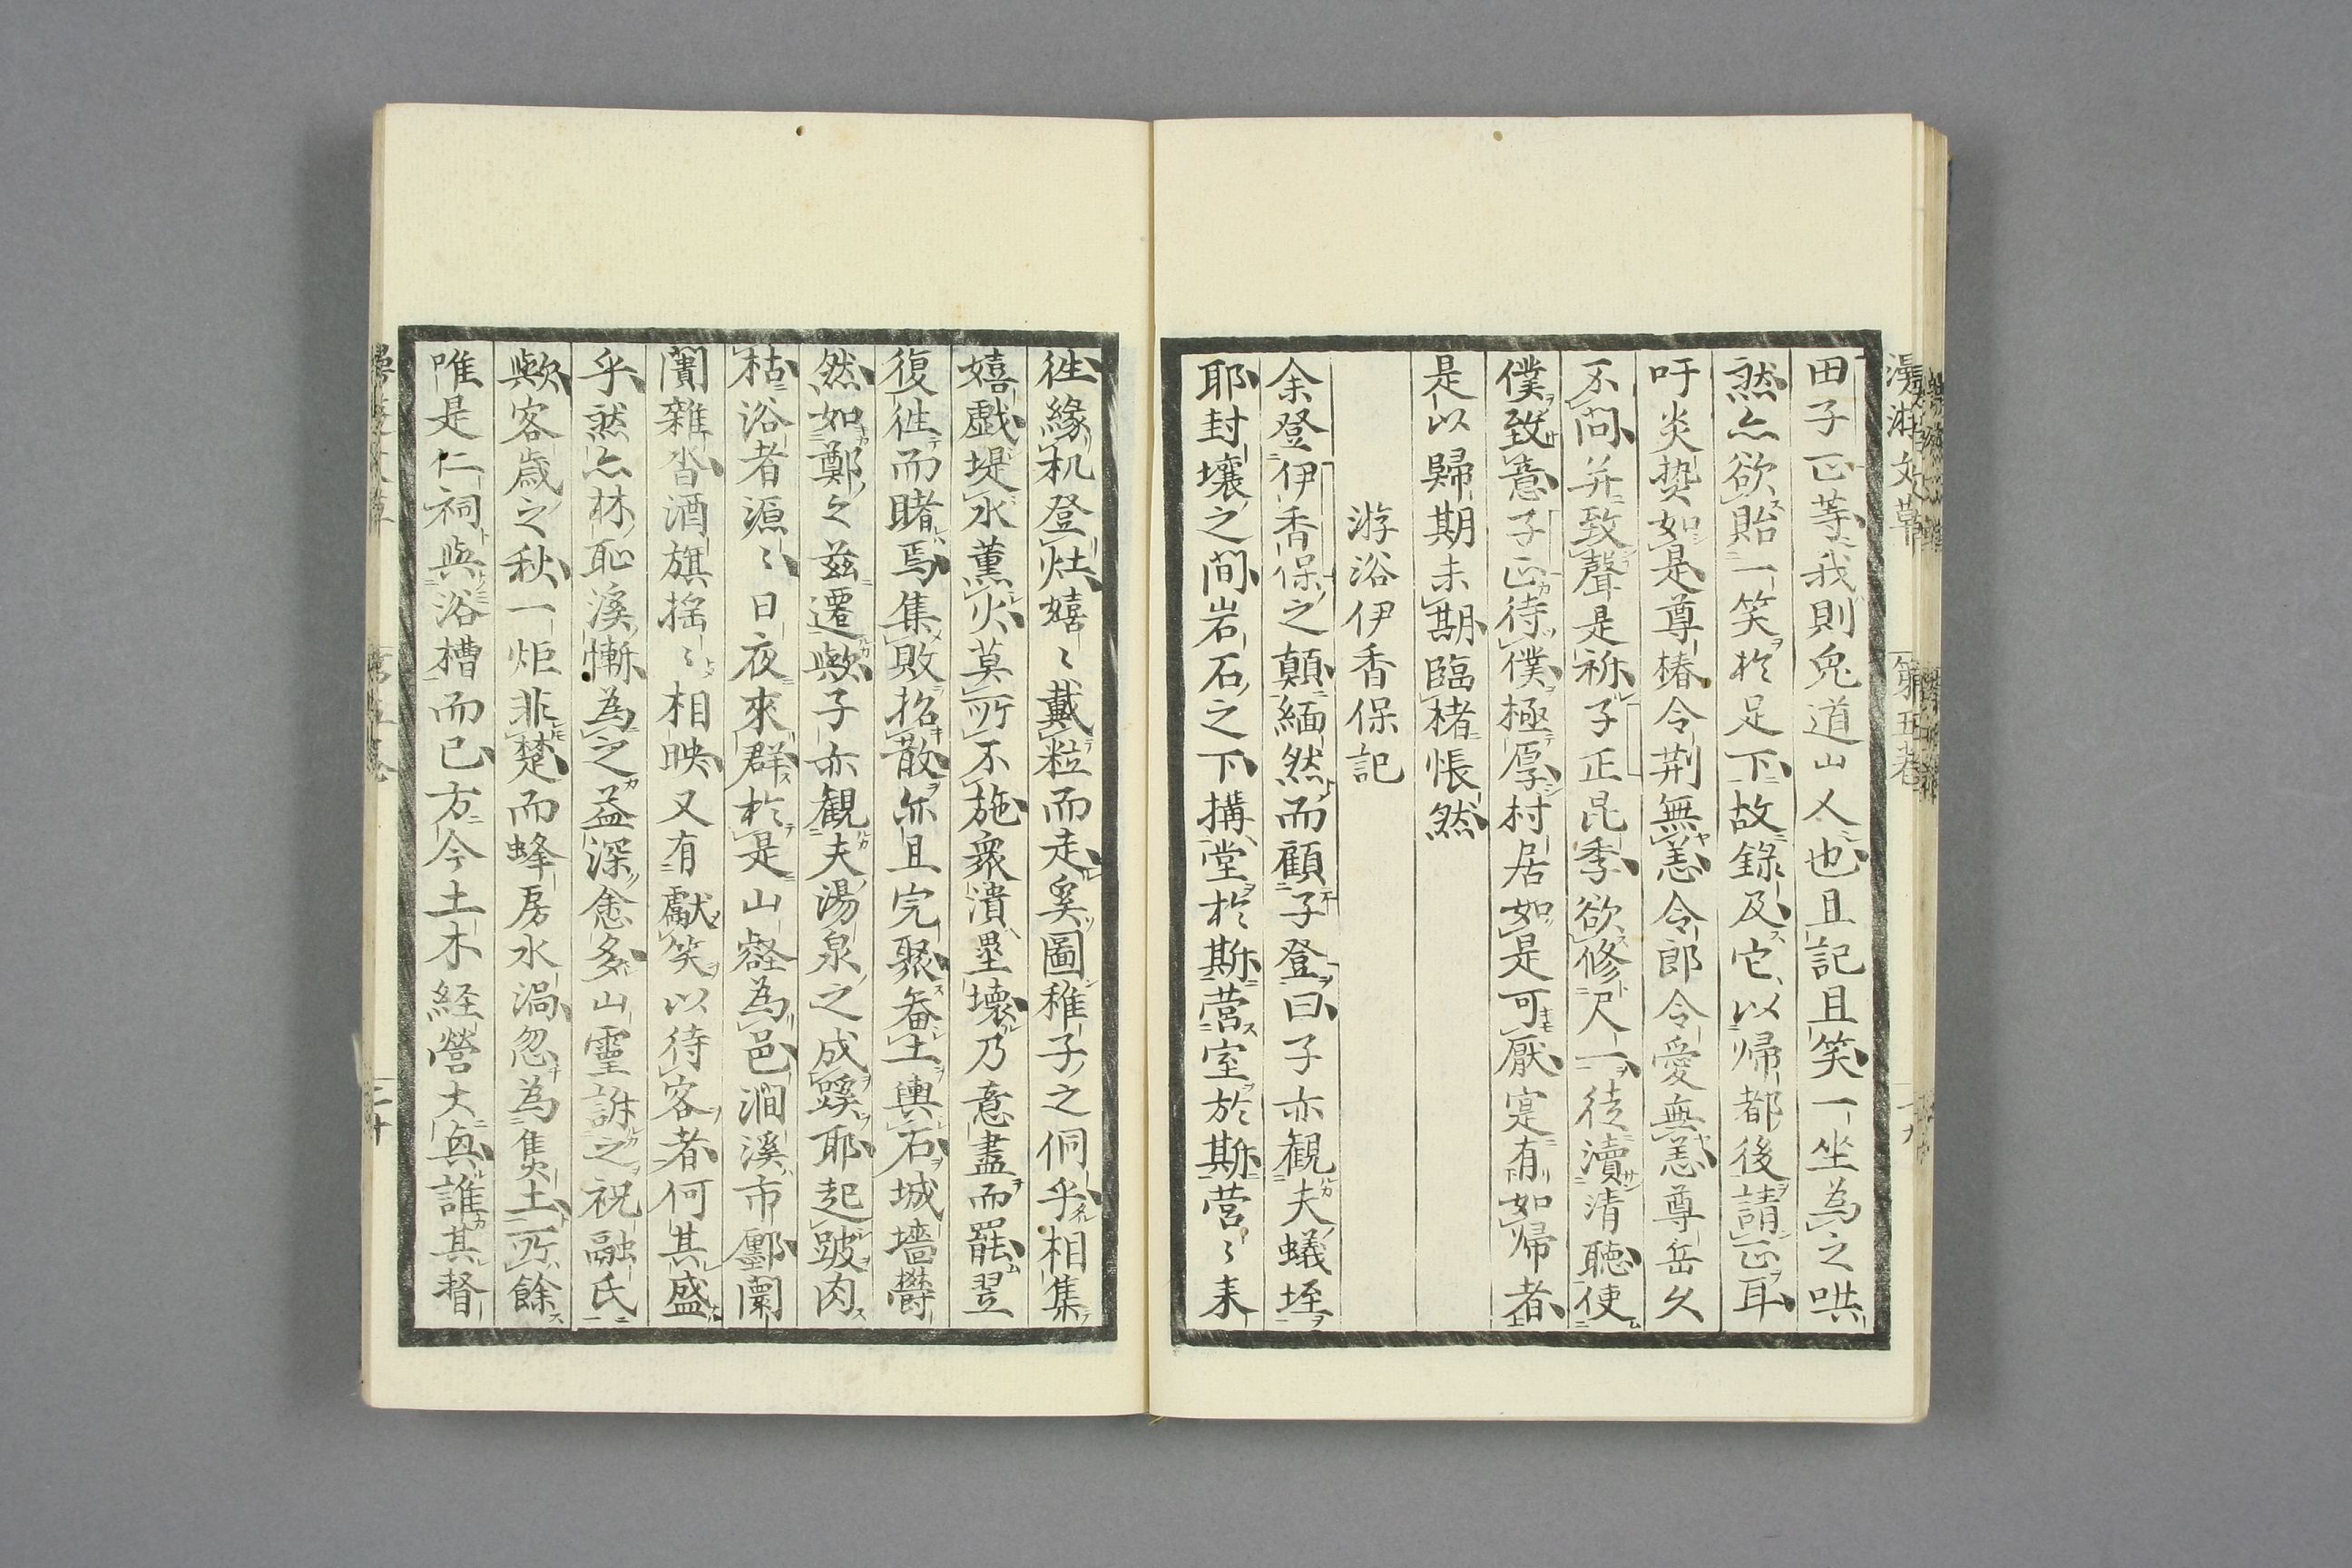 田子正等我則兔道山人也且記且笑一坐為之哄
然亦欲貽一笑於足下故錄及它以帰都後請正耳
吁炎𤍠如是尊椿令荆無恙令郎令愛無恙尊岳久
不問并致聲是祈子正昆季欲修尺一徒瀆清聴使
僕致意子正待僕極厚村居如是可厭寔有如帰者
是以歸期未期臨楮悵然
游浴伊香保記
余登伊香保之顛緬然而顧子登曰子亦観夫蟻垤
耶封壤之間岩石之下搆堂於斯営室於斯営〻来
徃緣机登灶嬉〻戴粒而走奚圖稚子之侗乎相集
嬉戯堤水薫火莫所不施衆潰壘壊乃意盡而罷翌
復徃而睹焉集敗招散亦且完聚畚土輿石城墻欝
然如鄭之茲遷歟子亦観夫湯泉之成蹊耶起跛肉
枯浴者源〻日夜來群於是山壑為邑澗溪市鄽闤
闠雜沓酒旗揺〻相映又有獻笑以待客者何其盛
乎然亦林恥溪慚為之益深愈多山靈訴之祝融氏
歟客歳之秋一炬非楚而蜂房水渦忽為焦土所餘
唯是仁祠與浴槽而已方今土木経營大興誰其督
漫游文草
第五巻
十九
二十